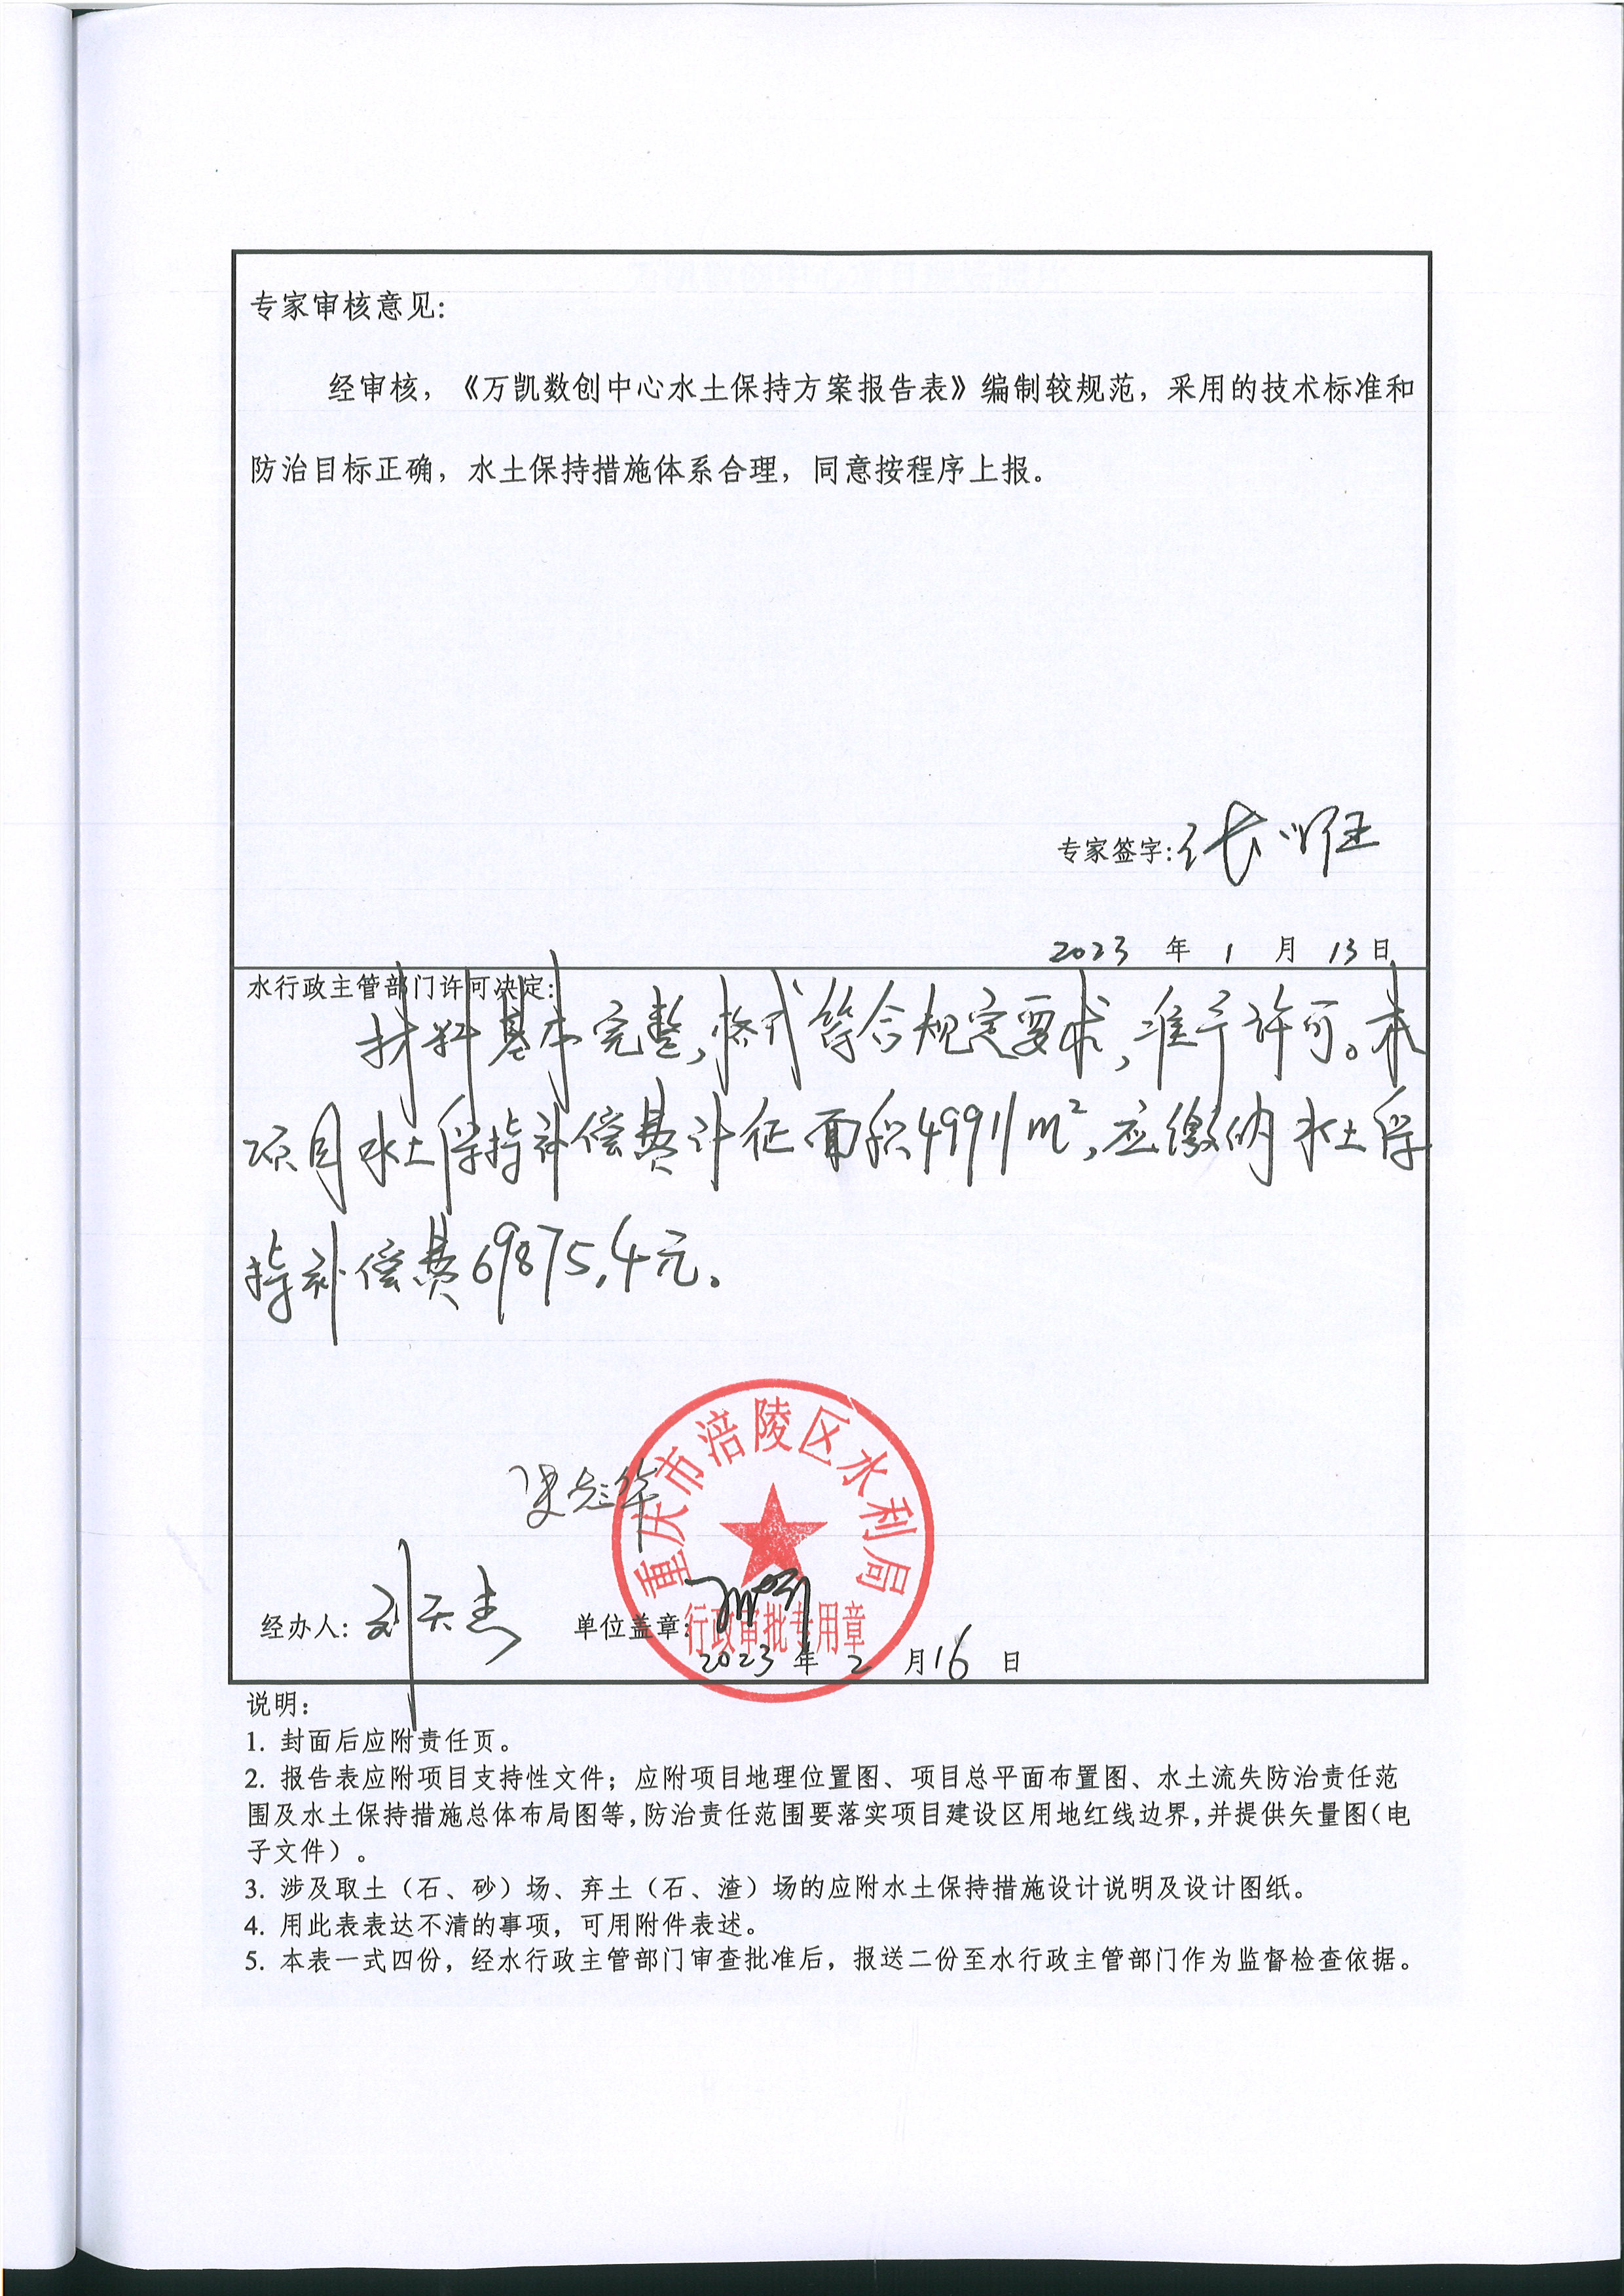 专家审核意见：
经审核，《万凯数创中心水土保持方案报告表》编制较规范，采用的技术标准和
防治目标正确，水土保持措施体系合理，同意按程序上报。
专家签字：
2023 年 1 月 13 日
水行政主管部门许可决定：
材料基本完整，格式符合规定要求，准予许可。本
项目水土保持补偿费计征面积49911m²，应缴纳水土保
持补偿费69875.4元。
重庆市涪陵区水利局
经办人：刘天杰 单位盖章：
行政审批专用章
2023 年 2 月 16 日
说明：
1. 封面后应附责任页。
2. 报告表应附项目支持性文件；应附项目地理位置图、项目总平面布置图、水土流失防治责任范
围及水土保持措施总体布局图等，防治责任范围要落实项目建设区用地红线边界，并提供矢量图（电
子文件）。
3. 涉及取土（石、砂）场、弃土（石、渣）场的应附水土保持措施设计说明及设计图纸。
4. 用此表表达不清的事项，可用附件表述。
5. 本表一式四份，经水行政主管部门审查批准后，报送二份至水行政主管部门作为监督检查依据。